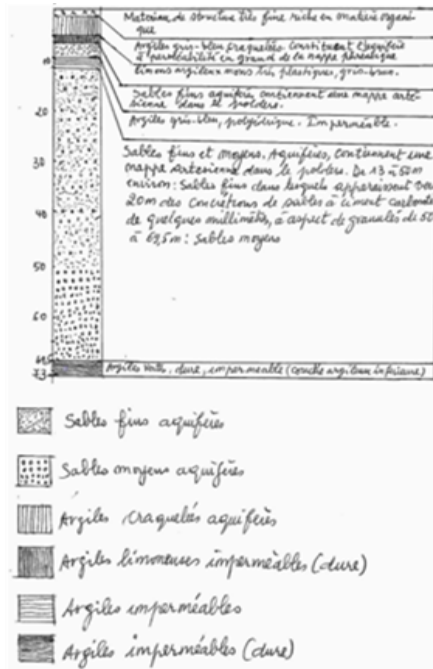 Matériau de structure très fine riche en matière organi-
que
Argiles gris-bleu craquelées. Constituent l'aquifère
à perméabilité en grand de la nappe phréatique
Limons argileux mous très plastiques, gris-brun.
Sables fins aquifères contiennent une nappe arté-
sienne dans le poldere.
Argiles gris-bleu, polyédrique. Imperméable.
10
20
30
40
50
60
73
Sables fins et moyens. Aquifères, contiennent une
nappe artesienne dans le poldere. De 13 à 50m
environ: Sables fins dans lesquels apparaissent vers
20m des concrétions de sables à ciment carbonaté
de quelques millimètres, à aspect de granulés de 50
à 69,5m: Sables moyens
Argiles verte, dure, imperméable (couche argileuse inférieure)
Sables fins aquifères
Sables moyens aquifères
Argiles craquelées aquifères
Argiles limoneuses imperméables (dure)
Argiles imperméables
Argiles imperméables (dure)